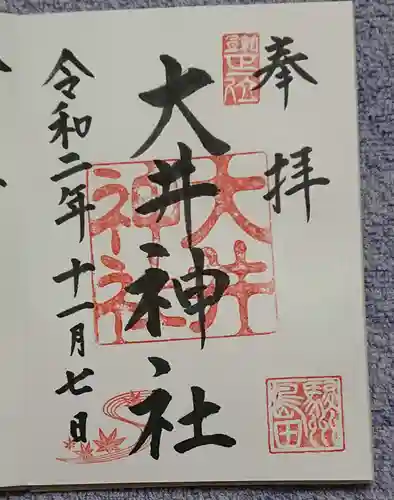 奉拝
大井神社
大井神社
駿州島田
令和二年十一月七日